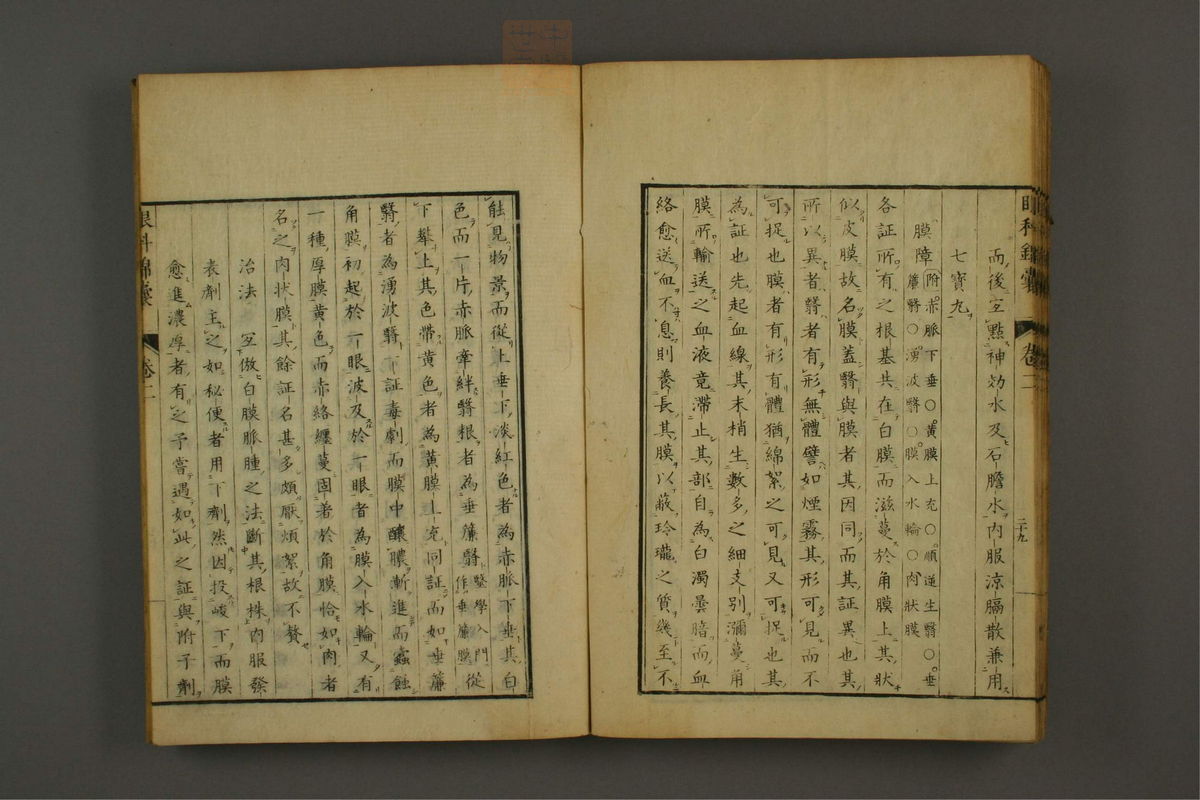 眼科錦囊 卷二
二十九
而後宜點神効水及石膽水內服涼膈散兼用
七寶丸
膜障 附赤脈下垂○黃膜上充○順逆生翳○垂
簾翳○湧波翳○膜入水輪○肉狀膜
各証所有之根基共在白膜而滋蔓於角膜上其狀
似皮膜故名膜蓋翳與膜者其因同而其証異也其
所以異者翳者有形無體譬如煙霧其形可見而不
可捉也膜者有形有體猶綿絮之可見又可捉也其
為証也先起血線其末梢生數多之細支別瀰蔓角
膜所輸送之血液竟滯止其部自為白濁曇暗而血
絡愈送血不息則養長其膜以蔽玲瓏之質幾至不
能見物景而從上垂下淡紅色者為赤脈下垂其白
色而一片赤脈牽絆翳根者為垂簾翳 醫學入門
作垂簾膜 從
下攀上其色帶黃色者為黃膜上充同証而如垂簾
翳者為湧波翳下証毒劇而膜中釀膿漸進而蝕蝕
角膜初起於一眼波及於一眼者為膜入水輪又有
一種厚膜黃色而赤絡纏蔓固著於角膜恰如肉者
名之肉狀膜其餘証名甚多頗厭煩絮故不贅
治法 宜倣白膜脈腫之法斷其根株內服發
表劑主之如秘便者用下劑然因投峻下而膜
愈進濃厚者有之予嘗遇如此之証與附子劑
眼科錦囊 卷二